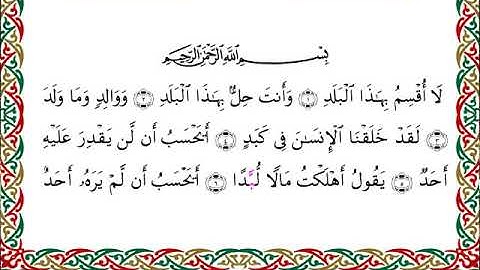 بِسْمِ اللَّهِ الرَّحْمَٰنِ الرَّحِيمِ
لَا أُقْسِمُ بِهَٰذَا الْبَلَدِ ۝١ وَأَنتَ حِلٌّ بِهَٰذَا الْبَلَدِ ۝٢ وَوَالِدٍ وَمَا وَلَدَ
۝٣ لَقَدْ خَلَقْنَا الْإِنسَٰنَ فِي كَبَدٍ ۝٤ أَيَحْسَبُ أَن لَّن يَقْدِرَ عَلَيْهِ
أَحَدٌ ۝٥ يَقُولُ أَهْلَكْتُ مَالًا لُّبَدًا ۝٦ أَيَحْسَبُ أَن لَّمْ يَرَهُۥ أَحَدٌ